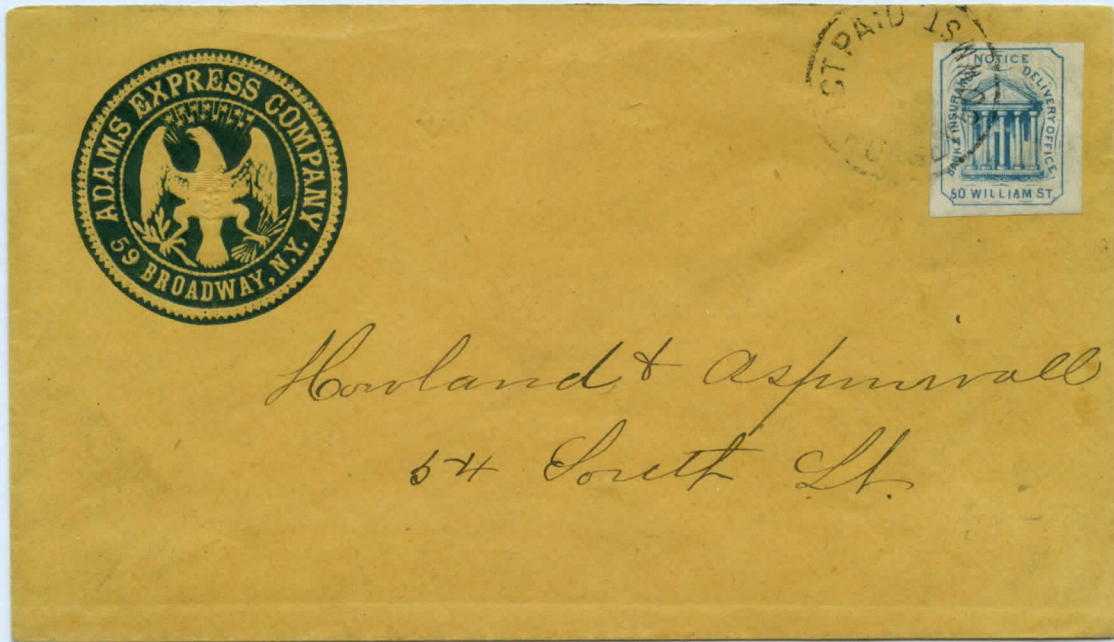 ADAMS EXPRESS COMPANY
59 BROADWAY, N.Y.
PAID
NOTICE
BANK & INSURANCE
DELIVERY OFFICE
50 WILLIAM ST.
Howland & Aspinwall
54 South St.